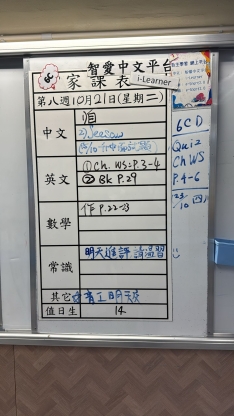 智愛中文平台
家課表
i-Learner
第八週10月21日(星期二)
中文
2) Seesaw
英文
① Ch. WS: P.3-4
② Bk P.29
數學
作 P.22-23
常識
明天進評 請溫習
其它
明天
值日生
14
6CD
Quiz
Ch WS
P.4-6
23/10 四